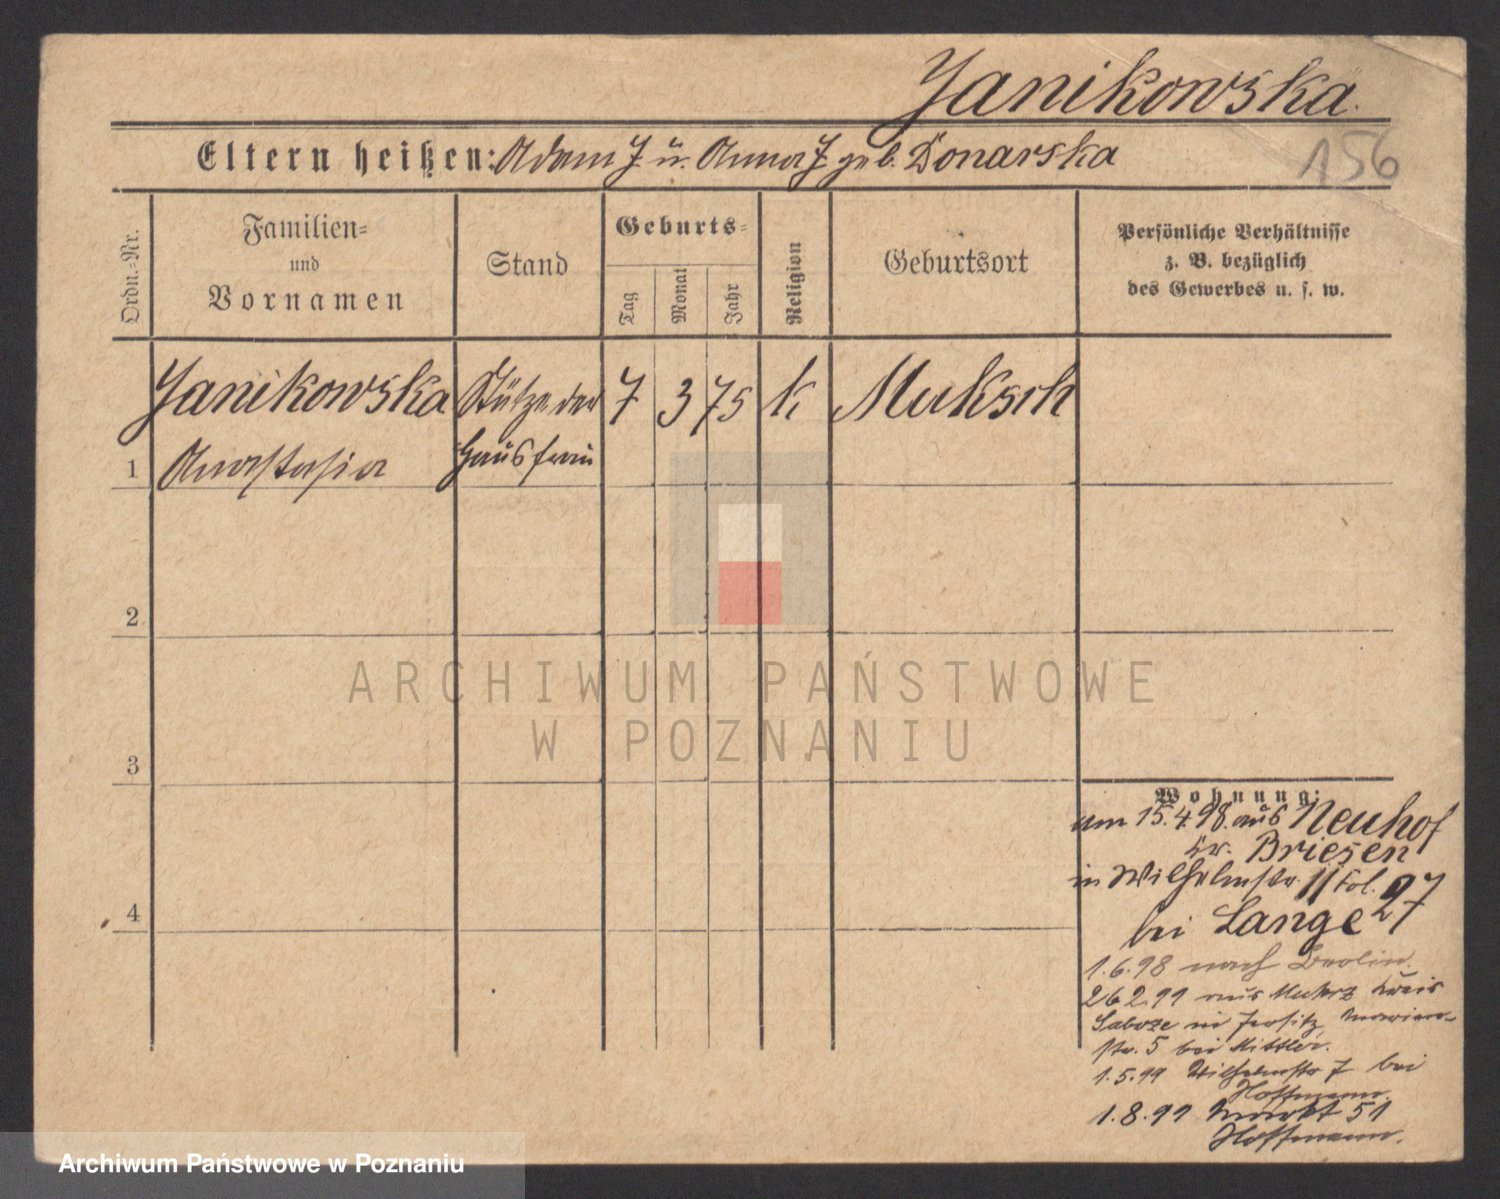 Janikowska.
156
Eltern heißen: Adam J. u. Anna J. geb. Donarska
Ordn.-Nr.
Familien-
und
Vornamen
Stand
Geburts-
Tag
Monat
Jahr
Religion
Geburtsort
Persönliche Verhältnisse
z. B. bezüglich
des Gewerbes u. s. w.
Janikowska Stütze der 7 3 75 k Muksch
1 Anastasia Hausfrau
2
3
4
Wohnung:
am 15.4.98. aus Neuhof
Kr. Briesen
in Wilhelmstr. 11 bei
27
bei Lange
1.6.98 nach Berlin.
26 2.99 aus Kreis
in Jersitz
str. 5 bei Mittler.
1.5.99 Wilhelmstr 7 bei
Hoffmann.
1.8.99 Markt 51
Hoffmann.
ARCHIWUM PAŃSTWOWE
W POZNANIU
Archiwum Państwowe w Poznaniu